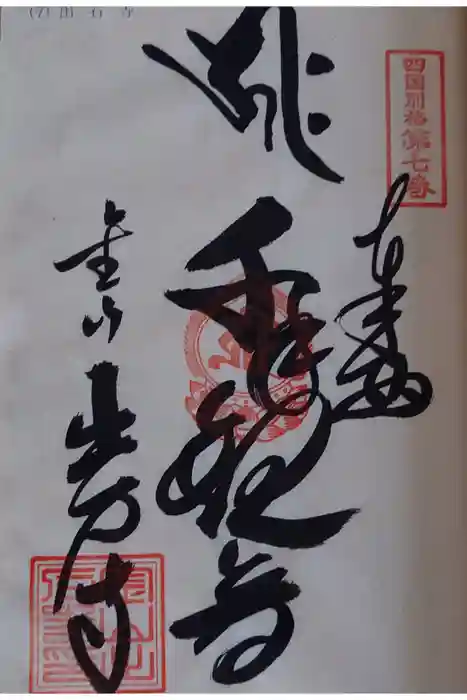 (7) 出石寺
四国別格第七番
奉拝
千手観音
金山
出石寺